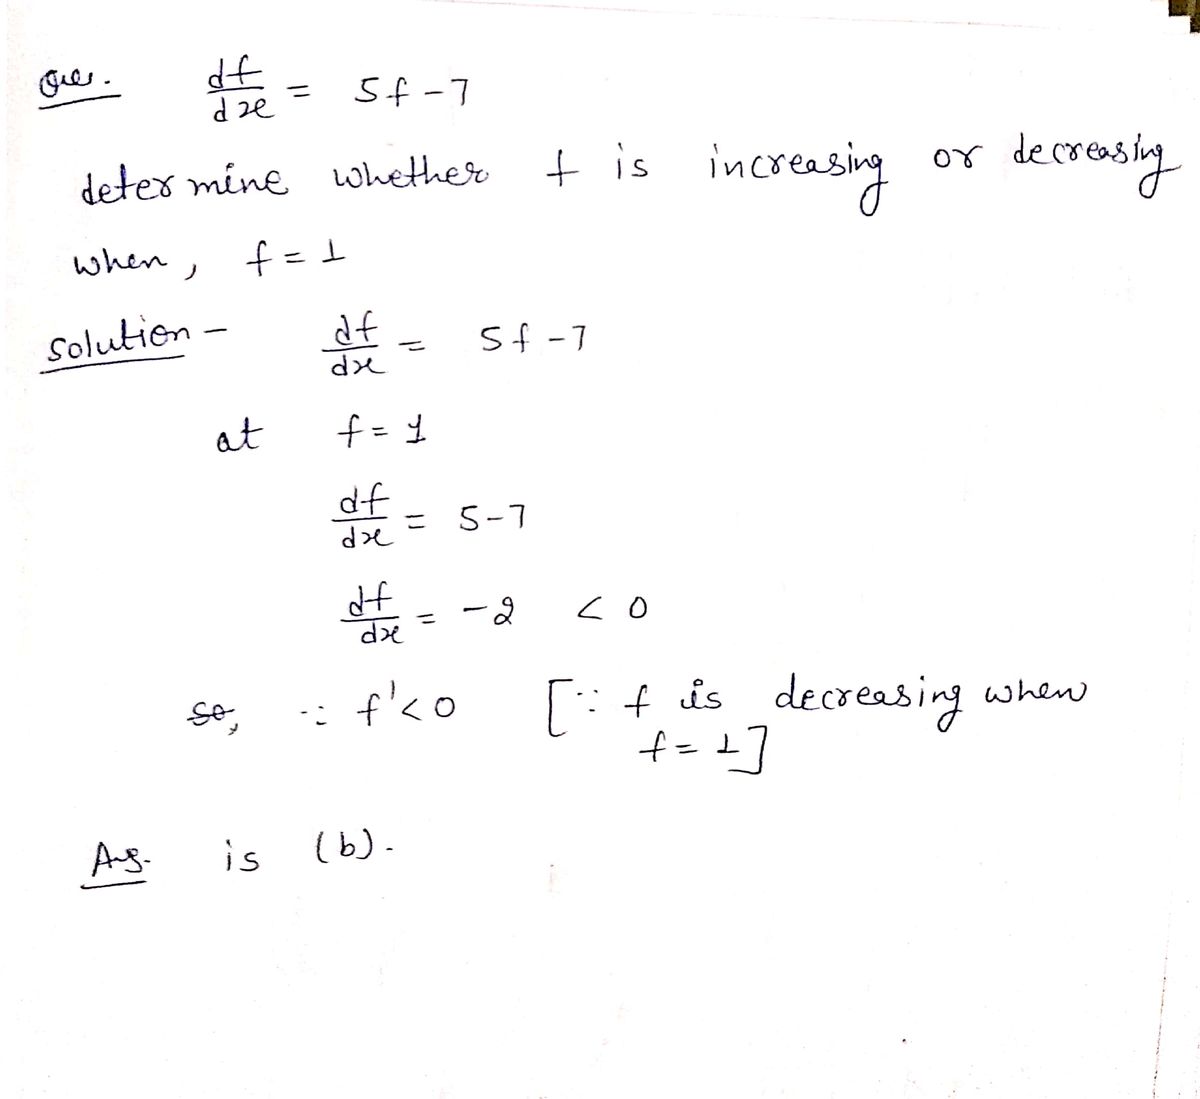 Que. df/dx = 5f-7
determine whether f is increasing or decreasing
when, f = 1
Solution - df/dx = 5f-7
at f = 1
df/dx = 5-7
df/dx = -2 < 0
so, ∵ f'<0 [∵ f is decreasing when
f = 1]
Ans. is (b).